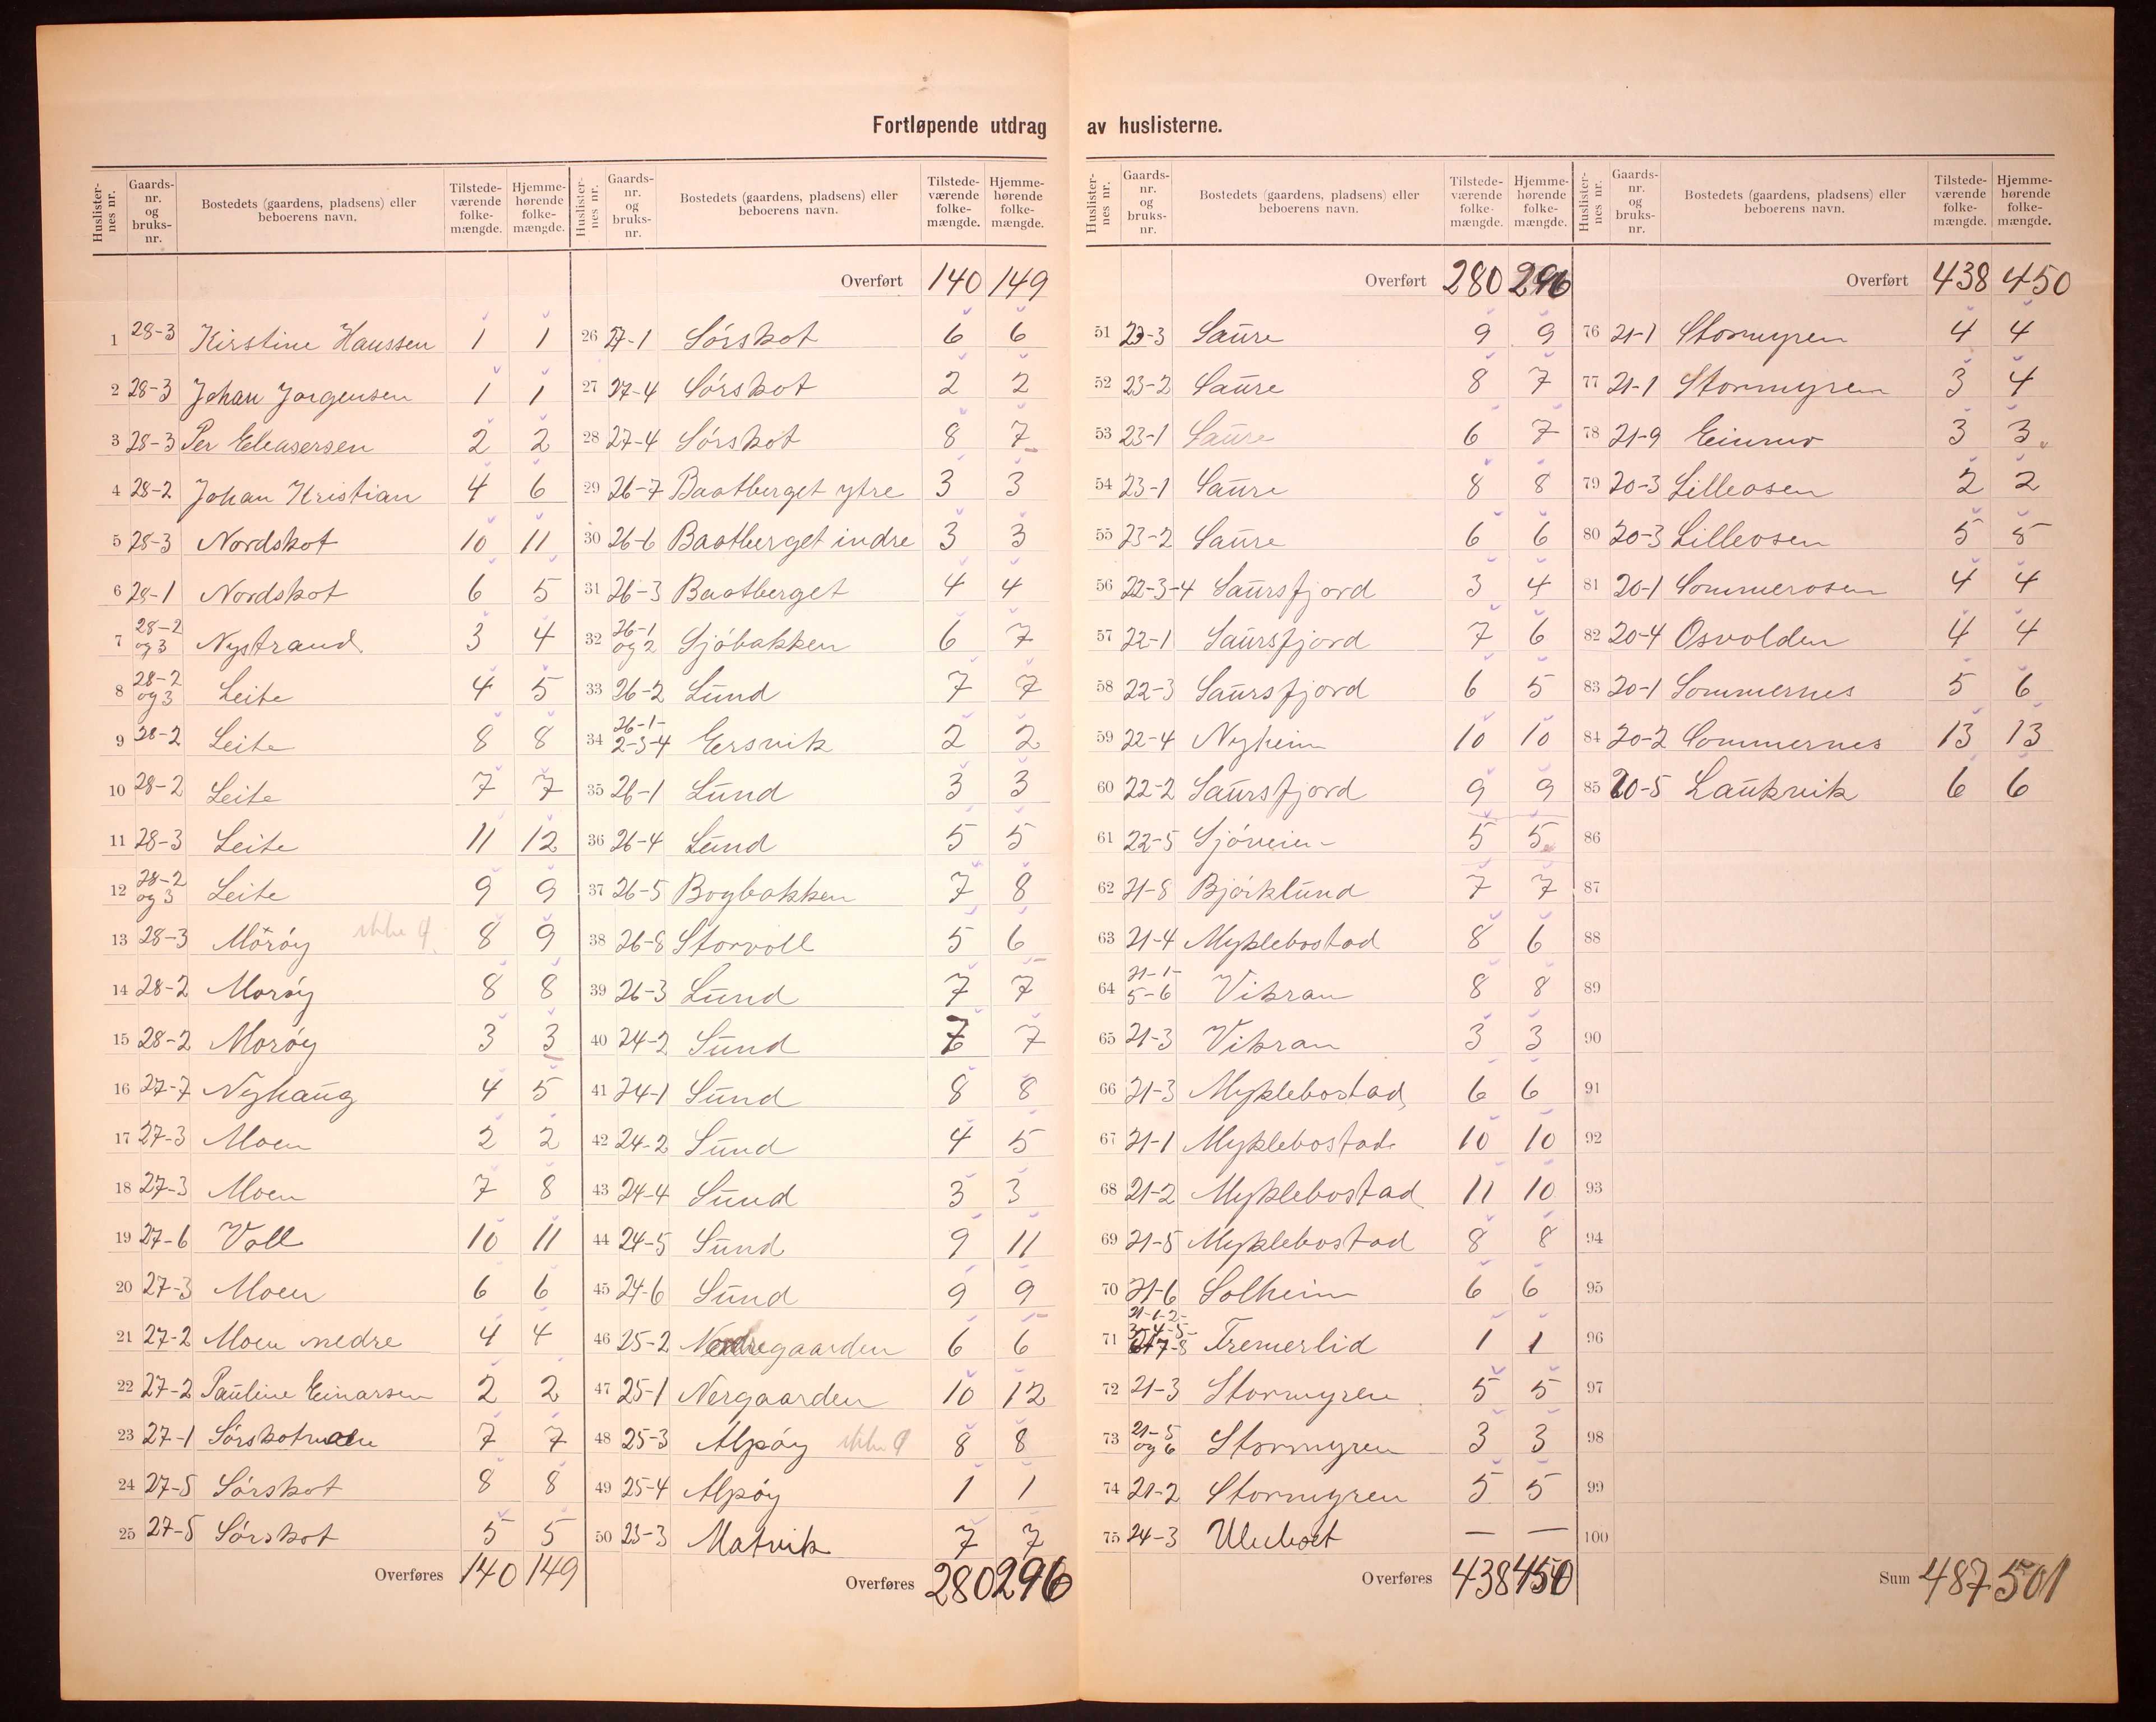 Fortløpende utdrag av huslisterne.
Huslisternes nr. Gaards-nr. og bruks-nr. Bostedets (gaardens, pladsens) eller beboerens navn. Tilstedeværende folkemængde. Hjemmehørende folkemængde.
1 28-3 Kirstine Hanssen 1 1
2 28-3 Johan Jorgensen 1 1
3 28-3 Per Eleasersen 2 2
4 28-2 Johan Kristian 4 6
5 28-3 Nordskot 10 11
6 28-1 Nordskot 6 5
7 28-2 og 3 Nystrand 3 4
8 28-2 og 3 Leite 4 5
9 28-2 Leite 8 8
10 28-2 Leite 7 7
11 28-3 Leite 11 12
12 28-2 og 3 Leite 9 9
13 28-3 Moröy ikke 9 8 9
14 28-2 Moröy 8 8
15 28-2 Moröy 3 3
16 27-7 Nyhaug 4 5
17 27-3 Moen 2 2
18 27-3 Moen 7 8
19 27-6 Voll 10 11
20 27-3 Moen 6 6
21 27-2 Moen nedre 4 4
22 27-2 Pauline Einarsen 2 2
23 27-1 Sörskotmoen 7 7
24 27-5 Sörskot 8 8
25 27-5 Sörskot 5 5
Overføres 140 149
Huslisternes nr. Gaards-nr. og bruks-nr. Bostedets (gaardens, pladsens) eller beboerens navn. Tilstedeværende folkemængde. Hjemmehørende folkemængde.
Overført 140 149
26 27-1 Sörskot 6 6
27 27-4 Sörskot 2 2
28 27-4 Sörskot 8 7
29 26-7 Baatberget ytre 3 3
30 26-6 Baatberget indre 3 3
31 26-3 Baatberget 4 4
32 26-1 og 2 Sjöbakken 6 7
33 26-2 Lund 7 7
34 26-1-2-3-4 Eersvik 2 2
35 26-1 Lund 3 3
36 26-4 Lund 5 5
37 26-5 Bogbakken 7 8
38 26-8 Storvoll 5 6
39 26-3 Lund 7 7
40 24-2 Sund 7 7
41 24-1 Sund 8 8
42 24-2 Sund 4 5
43 24-4 Sund 3 3
44 24-5 Sund 9 11
45 24-6 Sund 9 9
46 25-2 Nordregaarden 6 6
47 25-1 Nergaarden 10 12
48 25-3 Alpöy ikke 9 8 8
49 25-4 Alpöy 1 1
50 23-3 Matvik 7 7
Overføres 280 296
Huslisternes nr. Gaards-nr. og bruks-nr. Bostedets (gaardens, pladsens) eller beboerens navn. Tilstedeværende folkemængde. Hjemmehørende folkemængde.
Overført 280 296
51 23-3 Saure 9 9
52 23-2 Saure 8 7
53 23-1 Saure 6 7
54 23-1 Saure 8 8
55 23-2 Saure 6 6
56 22-3-4 Saursfjord 3 4
57 22-1 Saursfjord 7 6
58 22-3 Saursfjord 6 5
59 22-4 Nyheim 10 10
60 22-2 Saursfjord 9 9
61 22-5 Sjöveien 5 5
62 21-8 Björklund 7 7
63 21-4 Myklebostad 8 6
64 21-1-5-6 Vikran 8 8
65 21-3 Vikran 3 3
66 21-3 Myklebostad 6 6
67 21-1 Myklebostad 10 10
68 21-2 Myklebostad 11 10
69 21-5 Myklebostad 8 8
70 21-6 Solheim 6 6
71 21-1-2-3-4-5-6-7-8 Tremerlid 1 1
72 21-3 Stormyren 5 5
73 21-5 og 6 Stormyren 3 3
74 21-2 Stormyren 5 5
75 24-3 — —
Overføres 438 450
Huslisternes nr. Gaards-nr. og bruks-nr. Bostedets (gaardens, pladsens) eller beboerens navn. Tilstedeværende folkemængde. Hjemmehørende folkemængde.
Overført 438 450
76 21-1 Stormyren 4 4
77 21-1 Stormyren 3 4
78 21-9 Einmo 3 3
79 20-3 Lilleosen 2 2
80 20-3 Lilleosen 5 5
81 20-1 Sommerosen 4 4
82 20-4 Osvolden 4 4
83 20-1 Sommernes 5 6
84 20-2 Sommernes 13 13
85 20-5 Laukvik 6 6
86
87
88
89
90
91
92
93
94
95
96
97
98
99
100
Sum 487 501